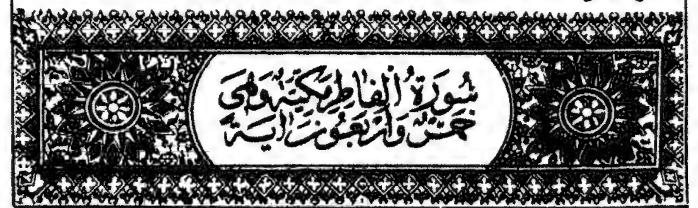 سُورَةُ الْفَاطِرِ مَكِّيَّةٌ وَهِيَ
خَمْسٌ وَأَرْبَعُونَ اٰيَةً